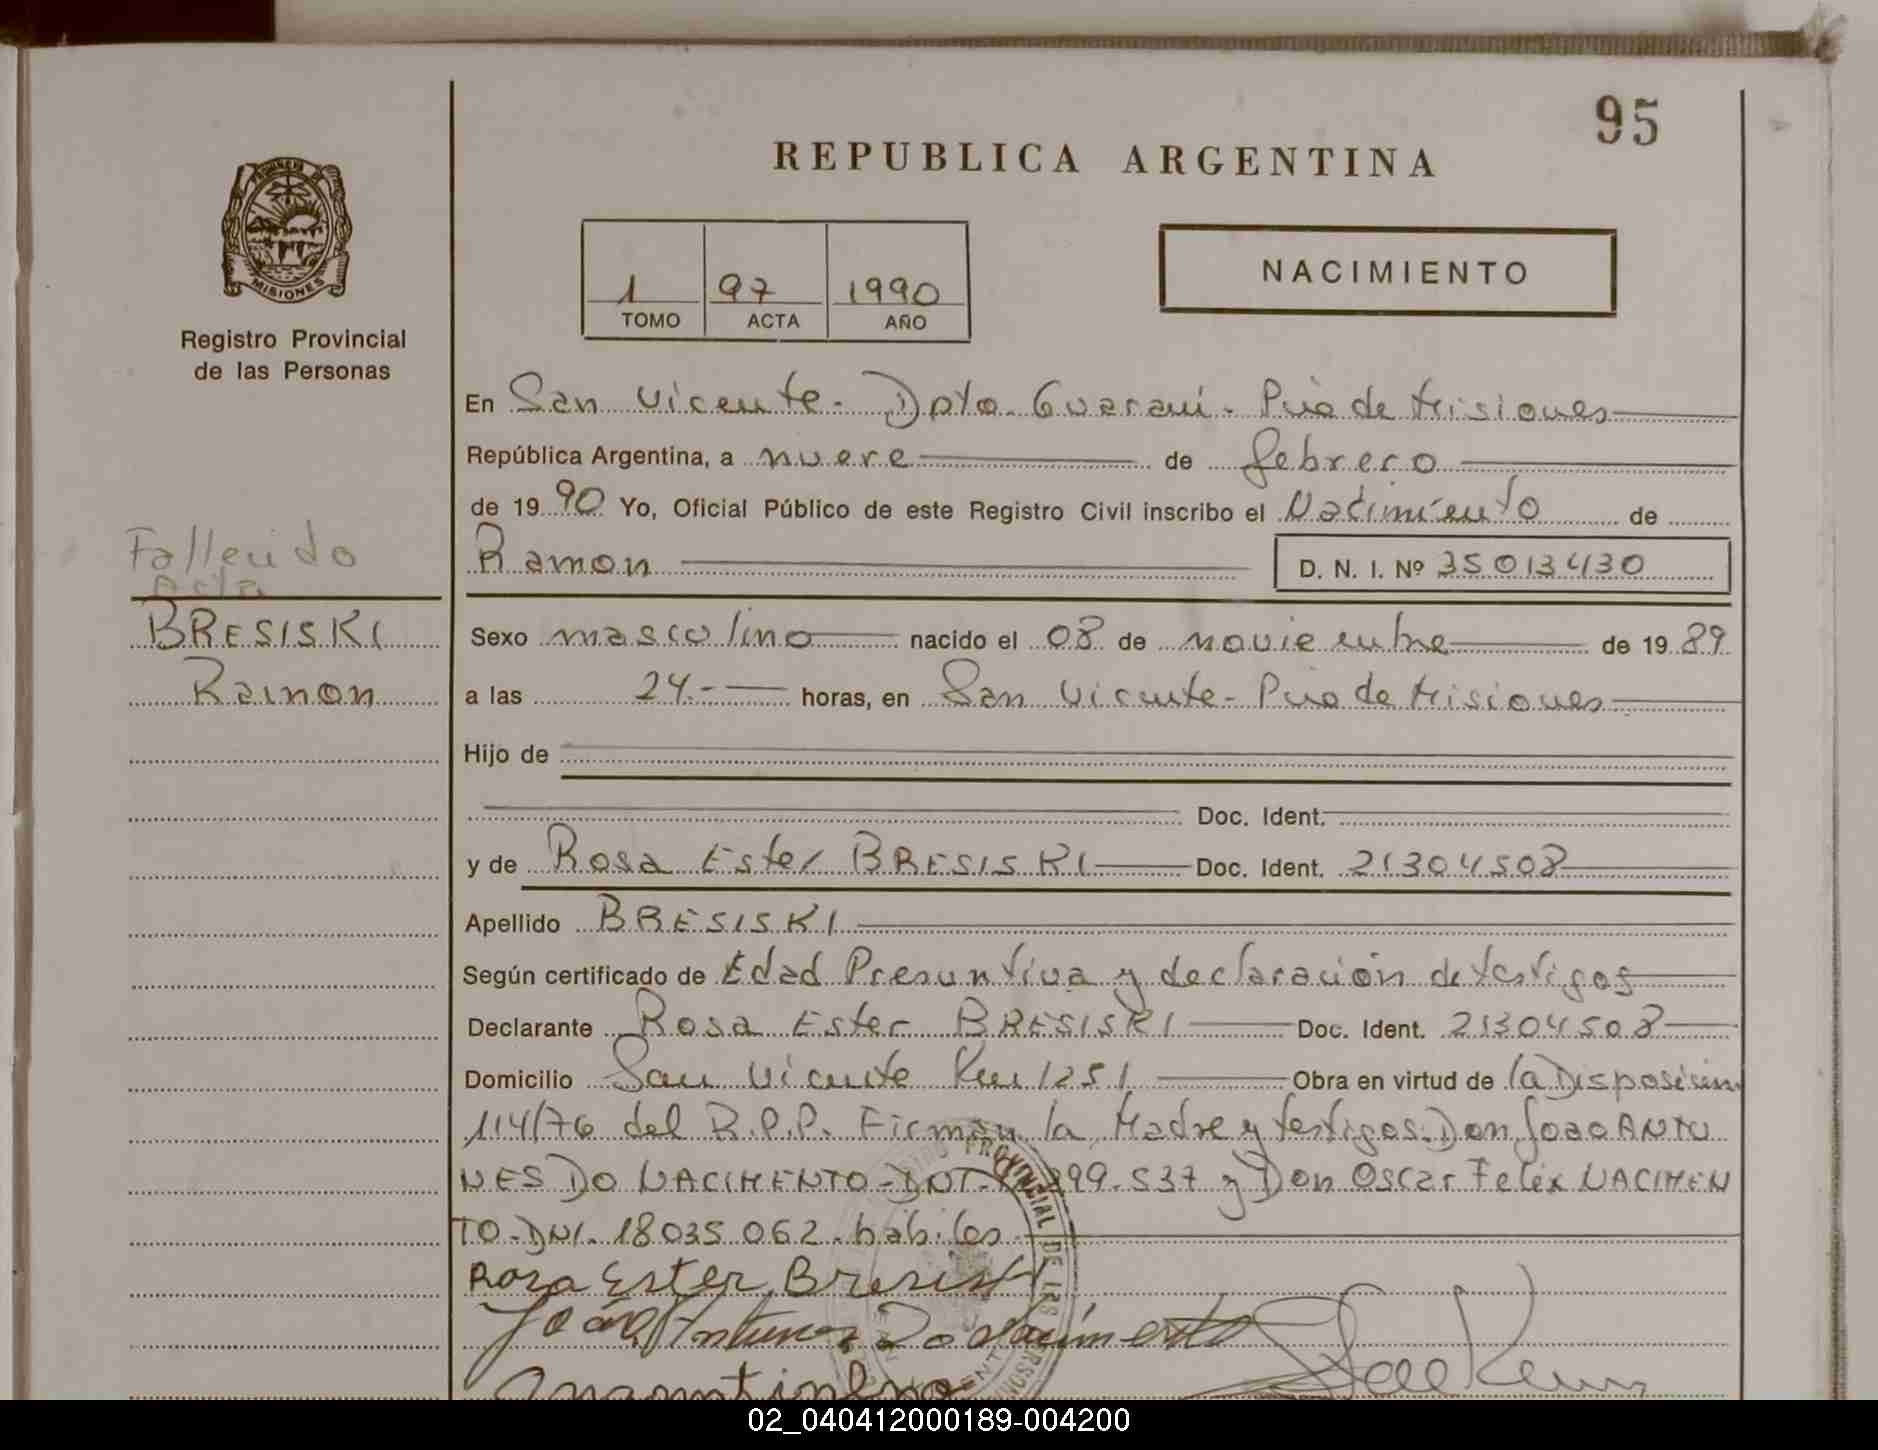 95
REPUBLICA ARGENTINA
MISIONES
Registro Provincial
de las Personas
1 97 1990
TOMO ACTA AÑO
NACIMIENTO
En San Vicente - Dpto. Guaraní - Pcia de Misiones
República Argentina, a nueve de febrero
de 19 90 Yo, Oficial Público de este Registro Civil inscribo el Nacimiento de
Ramon D. N. I. Nº 35013430
Fallecido
Acta
BRESISKI
Ramon
Sexo masculino nacido el 08 de noviembre de 19 89
a las 24.- horas, en San Vicente - Pcia de Misiones
Hijo de
Doc. Ident.
y de Rosa Ester BRESISKI Doc. Ident. 21304508
Apellido BRESISKI
Según certificado de Edad Presuntiva y declaración de testigos
Declarante Rosa Ester BRESISKI Doc. Ident. 21304508
Domicilio San Vicente Km 1251 Obra en virtud de la Disposición
114/76 del R.P.P. Firman la Madre y testigos. Don Joao ANTU
NES DO NACIMENTO - DNI. 299.537 y Don Oscar Felix NACIMEN
TO - DNI. 18035 062. habiles
Rosa Ester Bresiski
João Antunes Do Nacimento
02_040412000189-004200